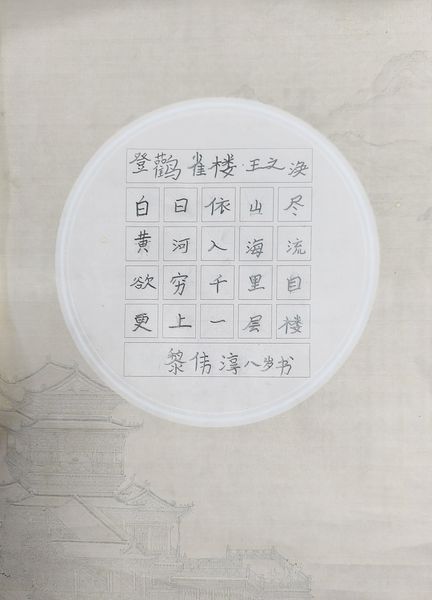 登鹳雀楼·王之涣
白日依山尽
黄河入海流
欲穷千里目
更上一层楼
黎伟淳八岁书